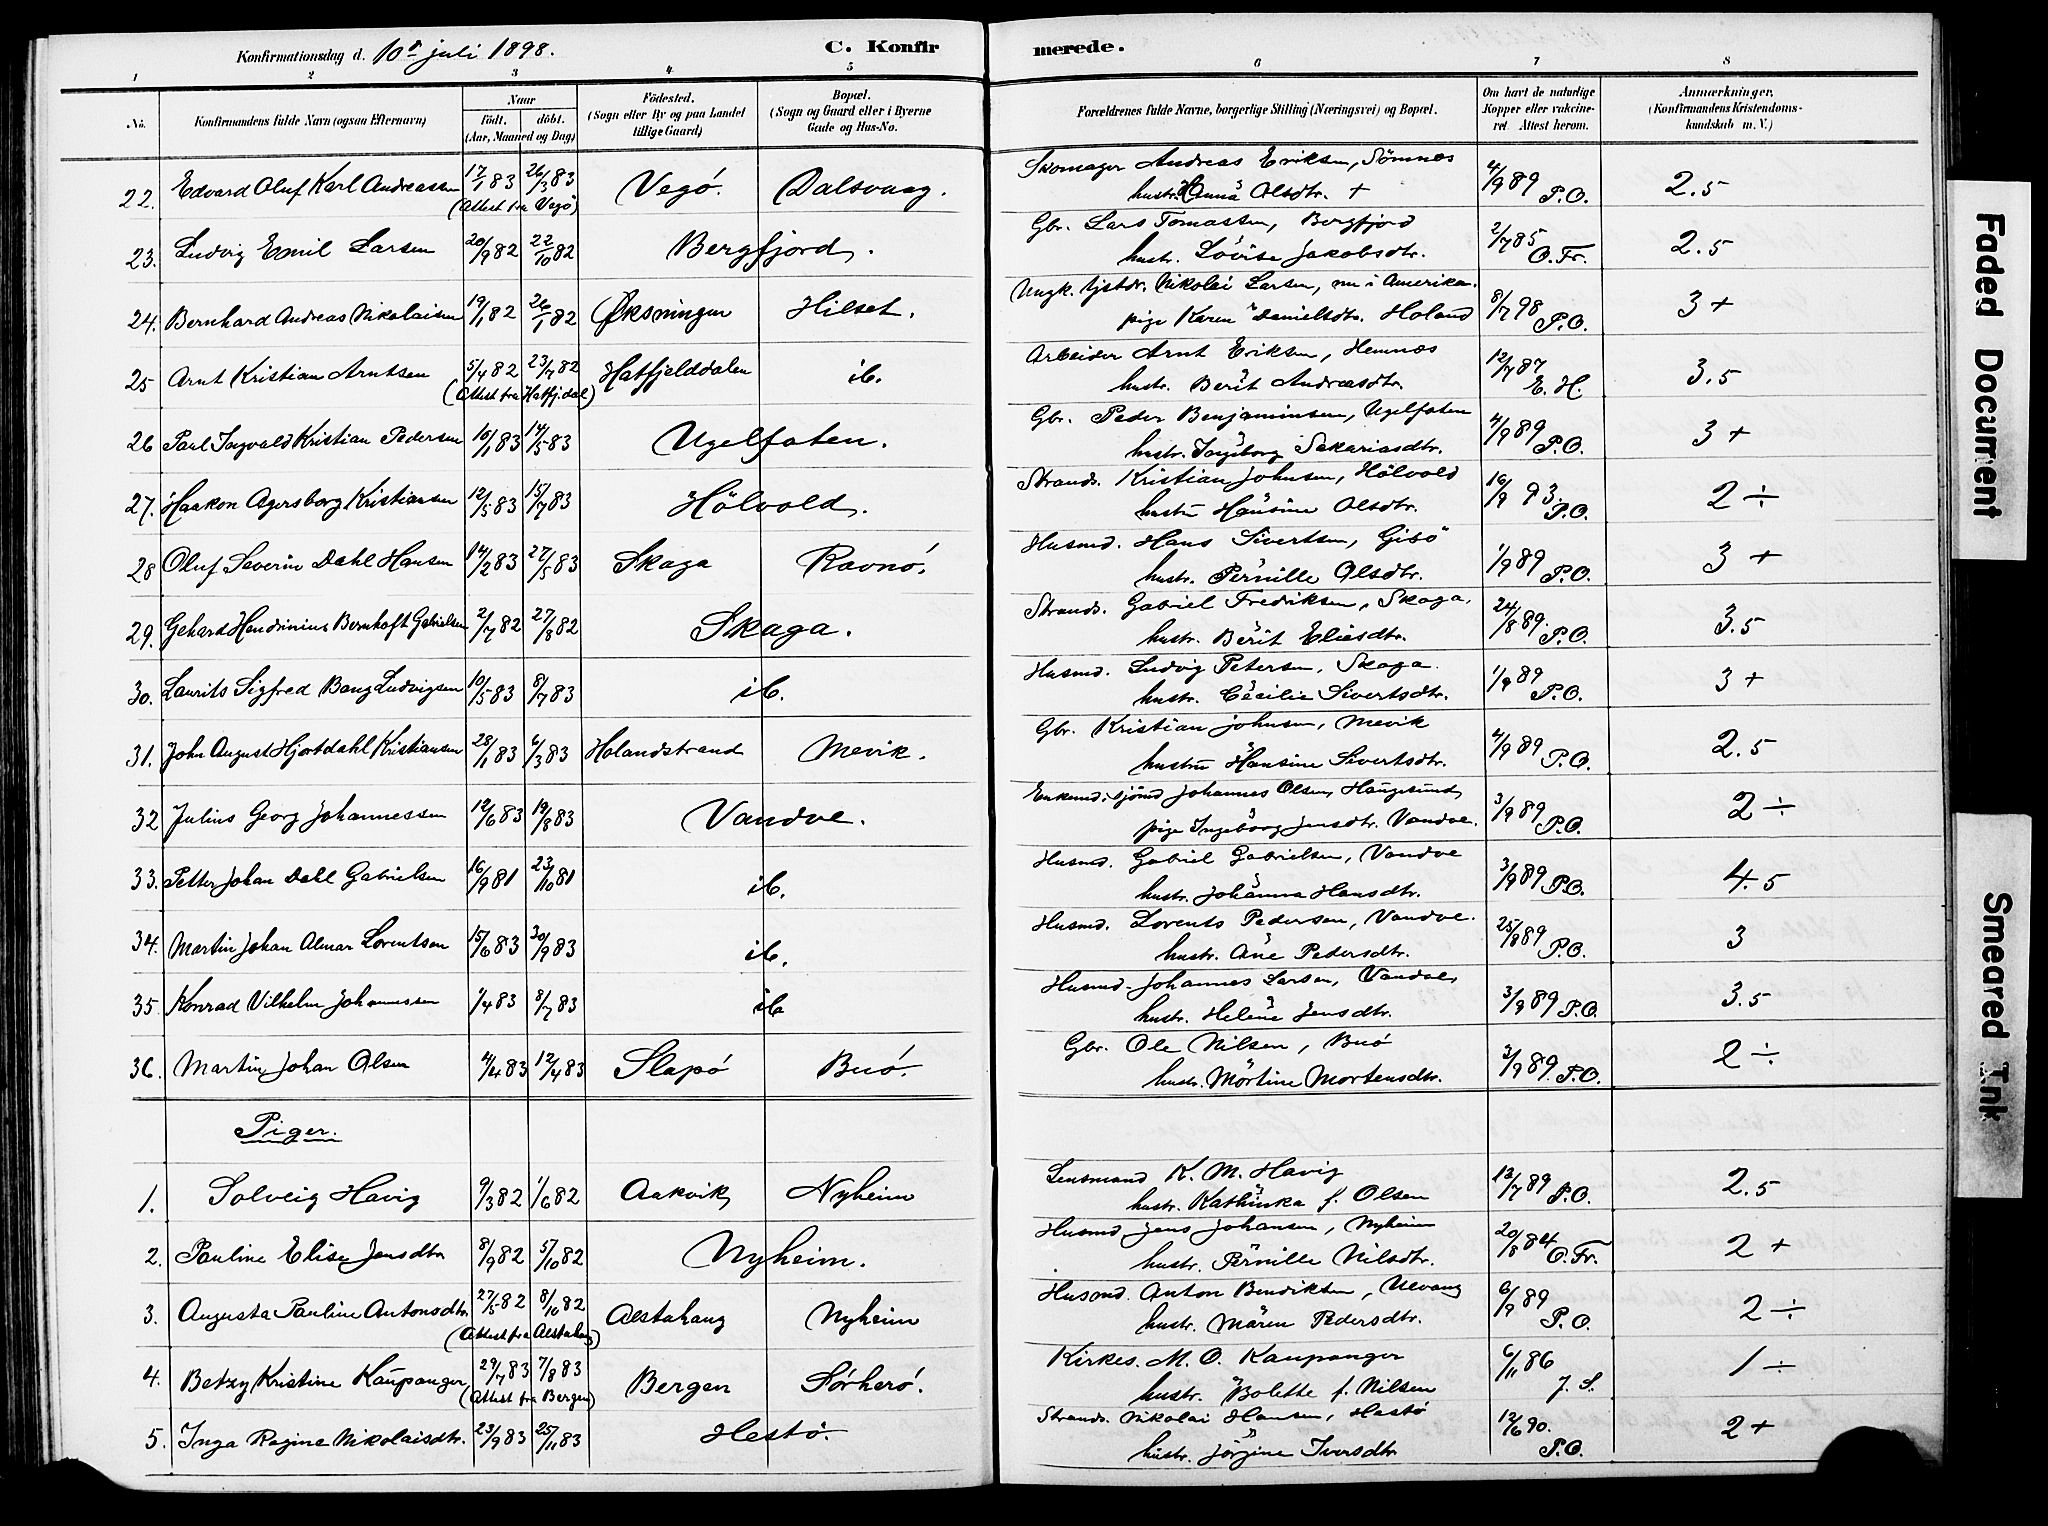 Konfirmationsdag d. 10de juli 1898. C. Konfir merede.
1 2 3 4 5 6 7 8
No. Konfirmandens fulde Navn (ogsaa Efternavn) Naar födt. döbt. (Aar, Maaned og Dag) Födested. (Sogn eller By og paa Landet tillige Gaard) Bopæl. (Sogn og Gaard eller i Byerne Gade og Hus-No. Forældrenes fulde Navne, borgerlige Stilling (Næringsvei) og Bopæl. Om havt de naturlige Kopper eller vakcineret. Attest herom. Anmærkninger. (Konfirmandens Kristendomskundskab m. V.)
22. Edvard Oluf Karl Andreassen 17/1 83 26/3 83 Vegö. Dalsvaag. Skomager Andreas Eriksen, Sömnes 4/9 89 P.O. 2.5
(Attest fra Vegö) hustr. Anna Olsdtr. +
23. Ludvig Emil Larsen 20/9 82 22/10 82 Bergfjord. Gbr. Lars Tomassen, Bergfjord 2/7 85 O. Fr. 2.5
hustr. Lovise Jakobsdtr.
24. Bernhard Andreas Nikolaisen 19/1 82 26/1 82 Øksningen Hilset. Ungk. tjstdr. Nikolai Larsen, nu i Amerika. 8/7 98 P.O. 3 +
pige Karen Danielsdtr. Holand
25 Arnt Kristian Arntsen 5/4 82 23/7 82 Hatfjelddalen ib. Arbeider Arnt Eriksen, Hemnæs 12/7 87 E. H. 3.5
(Attest fra Hatfj.dal) hustr. Berit Andreasdtr.
26 Paul Ingvald Kristian Pedersen 10/1 83 14/5 83 Ugelfaten. Gbr. Peder Benjaminsen, Ugelfaten 4/9 89 P.O. 3 +
hustr. Ingeborg Sakariasdtr.
27. Haakon Agersborg Kristiansen 12/5 83 15/7 83 Hölvold. Strands. Kristian Johnsen, Hölvold 16/9 93. P.O. 2 ÷
hustru Hansine Olsdtr.
28 Oluf Severin Dahl Hansen 14/2 83 27/5 83 Skaga Ravnö. Husmd. Hans Sivertsen, Gisö 1/9 89 P.O. 3 +
hustr. Pernille Olsdtr.
29. Gehard Hendrinius Bernhoft Gabrielsen 2/7 82 27/8 82 Skaga. Strands. Gabriel Fredriksen, Skaga. 24/8 89. P.O. 3.5
hustr. Berit Eliesdtr.
30. Laurits Sigfred Bang Ludvigsen 10/5 83 8/7 83 ib. Husmd. Ludvig Petersen, Skaga. 1/9 89 P.O. 3 +
hustr. Cecilie Sivertsdtr.
31. John August Hjortdahl Kristiansen 28/1 83 6/3 83 Holandstrand Mevik. Gbr. Kristian Johnsen, Mevik 4/9 89 P.O. 2.5
hustru Hansine Sivertsdtr.
32 Julius Georg Johannessen 12/6 83 19/8 83 Vandve. Enkemd. sjömd Johannes Olsen, Haugesund, 3/9 89 P.O. 2 ÷
pige Ingeborg Jensdtr. Vandve.
33. Petter Johan Dahl Gabrielsen 16/9 81 23/10 81 ib. Husmd. Gabriel Gabrielsen, Vandve 3/9 89 P.O. 4.5
hustr. Johanna Hansdtr.
34. Martin Johan Almar Lorentsen 15/6 83 30/9 83 ib. Husmd. Lorents Pedersen, Vandve. 25/8 89 P.O. 3
hustr. Ane Pedersdtr.
35. Konrad Vilhelm Johannessen 1/4 83 8/7 83 ib Husmd. Johannes Larsen, Vandve, 3/9 89 P.O. 3.5
hustr. Helene Jensdtr.
36. Martin Johan Olsen 4/4 83 12/4 83 Slapö Buö. Gbr. Ole Nilsen, Buö 3/9 89. P.O. 2 ÷
hustr. Mortine Mortensdtr.
Piger.
1. Solveig Havig 9/3 82 1/6 82 Aakvik, Nyheim Lensmand K. M. Havig 13/7 89 P.O. 2.5
hustr. Kathinka f. Olsen
2. Pauline Elise Jensdtr 8/9 82 5/10 82 Nyheim. Husmd. Jens Johansen, Nyheim 20/8 84 O. Fr. 2 +
hustr. Pernille Nilsdtr.
3. Augusta Pauline Antonsdtr. 27/5 82 8/10 82 Alstahaug Nyheim Husmd. Anton Bendiksen, Ulvang 6/9 89 P.O. 2 ÷
(Attest fra Alstahaug) hustr. Maren Pedersdtr.
4. Betzy Kristine Kaupanger 29/7 83 7/8 83 Bergen Sörherö. Kirkes. M. O. Kaupanger 6/11 86 J. S. 1 ÷
(Attest fra Bergen) hustr. Bolette f. Nilsen
5. Inga Regine Nikolaisdtr. 23/9 83 25/11 83 Hestö. Strands. Nikolai Hansen, Hestö 12/6 90. P.O. 2 +
hustr. Jörgine Iversdtr.
Faded Document
Smeared Ink